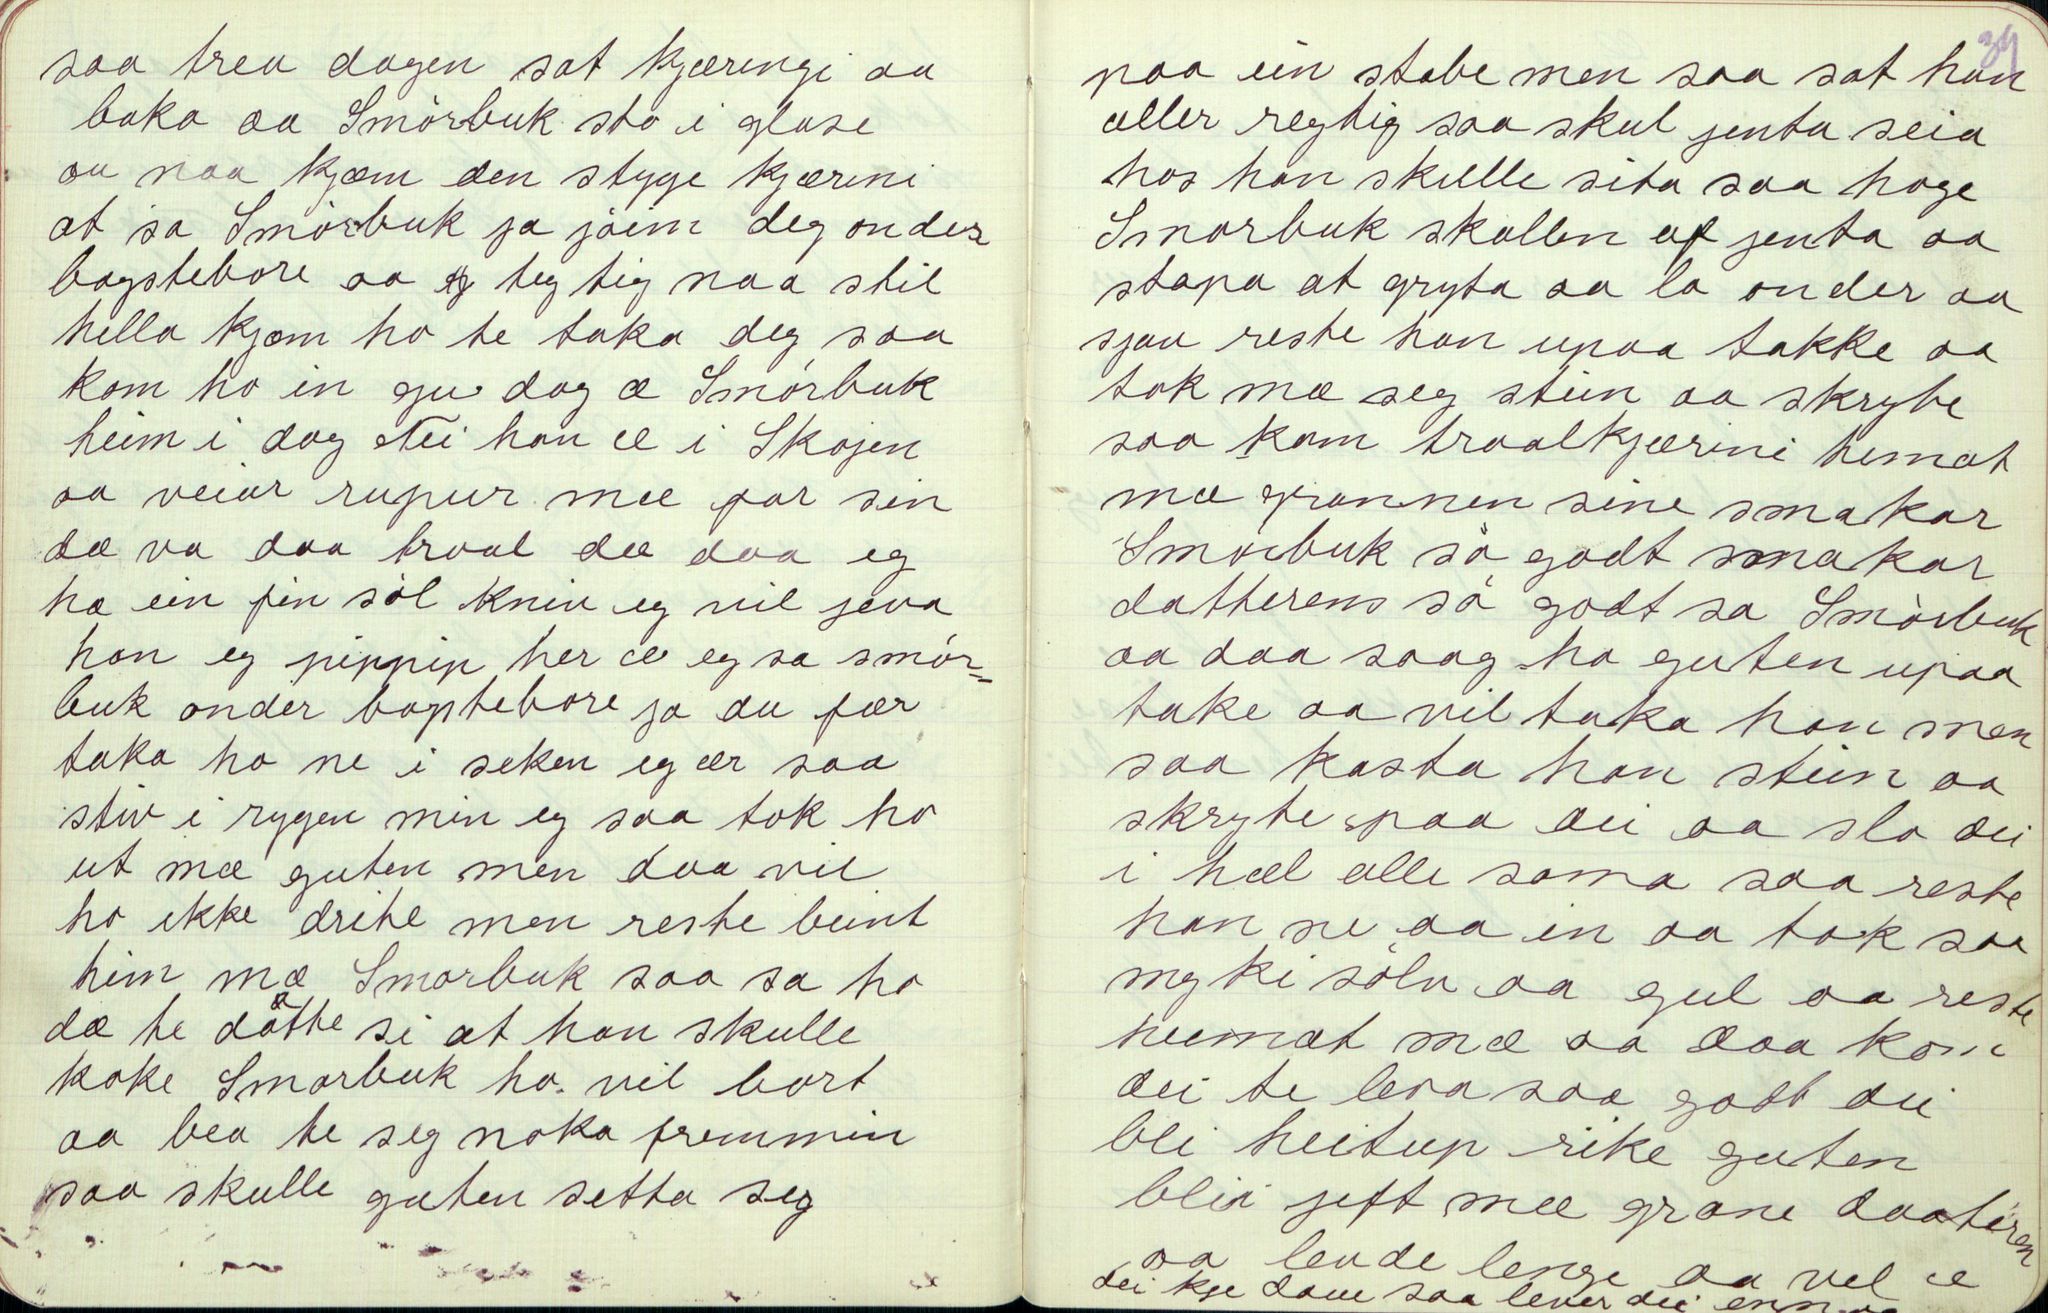 saa trea dagen sat kjæringi aa
baka aa Smörbuk sto i glase
aa naa kjæm den stygge kjærini
at sa Smörbuk ja jöim deg onder
bagstebore aa teg tig naa stil
hella kjæm ho te taka deg saa
kom ho in gu dag æ Smörbuk
heim i dag Nei han æ i Skojen
aa veiar rupur mæ far sin
dæ va daa traal dæ daa eg
ha ein fin söl kniv eg vil jeva
han eg pippip her æ eg sa smör=
buk onder bagstebore ja du fær
taka ho ne i seken eg ær saa
stiv i rygen min eg saa tok ho
ut mæ guten men daa vil
ho ikke drite men reste beint
him mæ Smorbuk saa sa ho
dæ te dåtte si at hon skulle
koke Smorbuk ho vil bort
aa bea te seg noka fremmin
saa skulle guten setta seg
34
paa ein stabe men saa sat han
aller regtig saa skul jenta seia
hos han skulle sita saa hoge
Smorbuk skallen af jenta aa
stapa at gryta aa la onder aa
sjaa reste han upaa takke aa
tok mæ seg stein aa skrybe
saa kom traalkjærini himat
mæ grannen sine smakar
Smörbuk så godt smakar
datterens så godt sa Smörbuk
aa daa saag ho guten upaa
take aa vil taka han men
saa kasta han stein aa
skryte paa dei aa slo dei
i hæl alle sama saa reste
han ne aa in aa tok saa
myki sölv aa gul aa reste
heimat mæ aa daa kom
dei te leva saa godt dei
bli heitup rike guten
blei jeft mæ grane daateren
aa levde lenge aa vel æ
dei kje daue saa lever dei